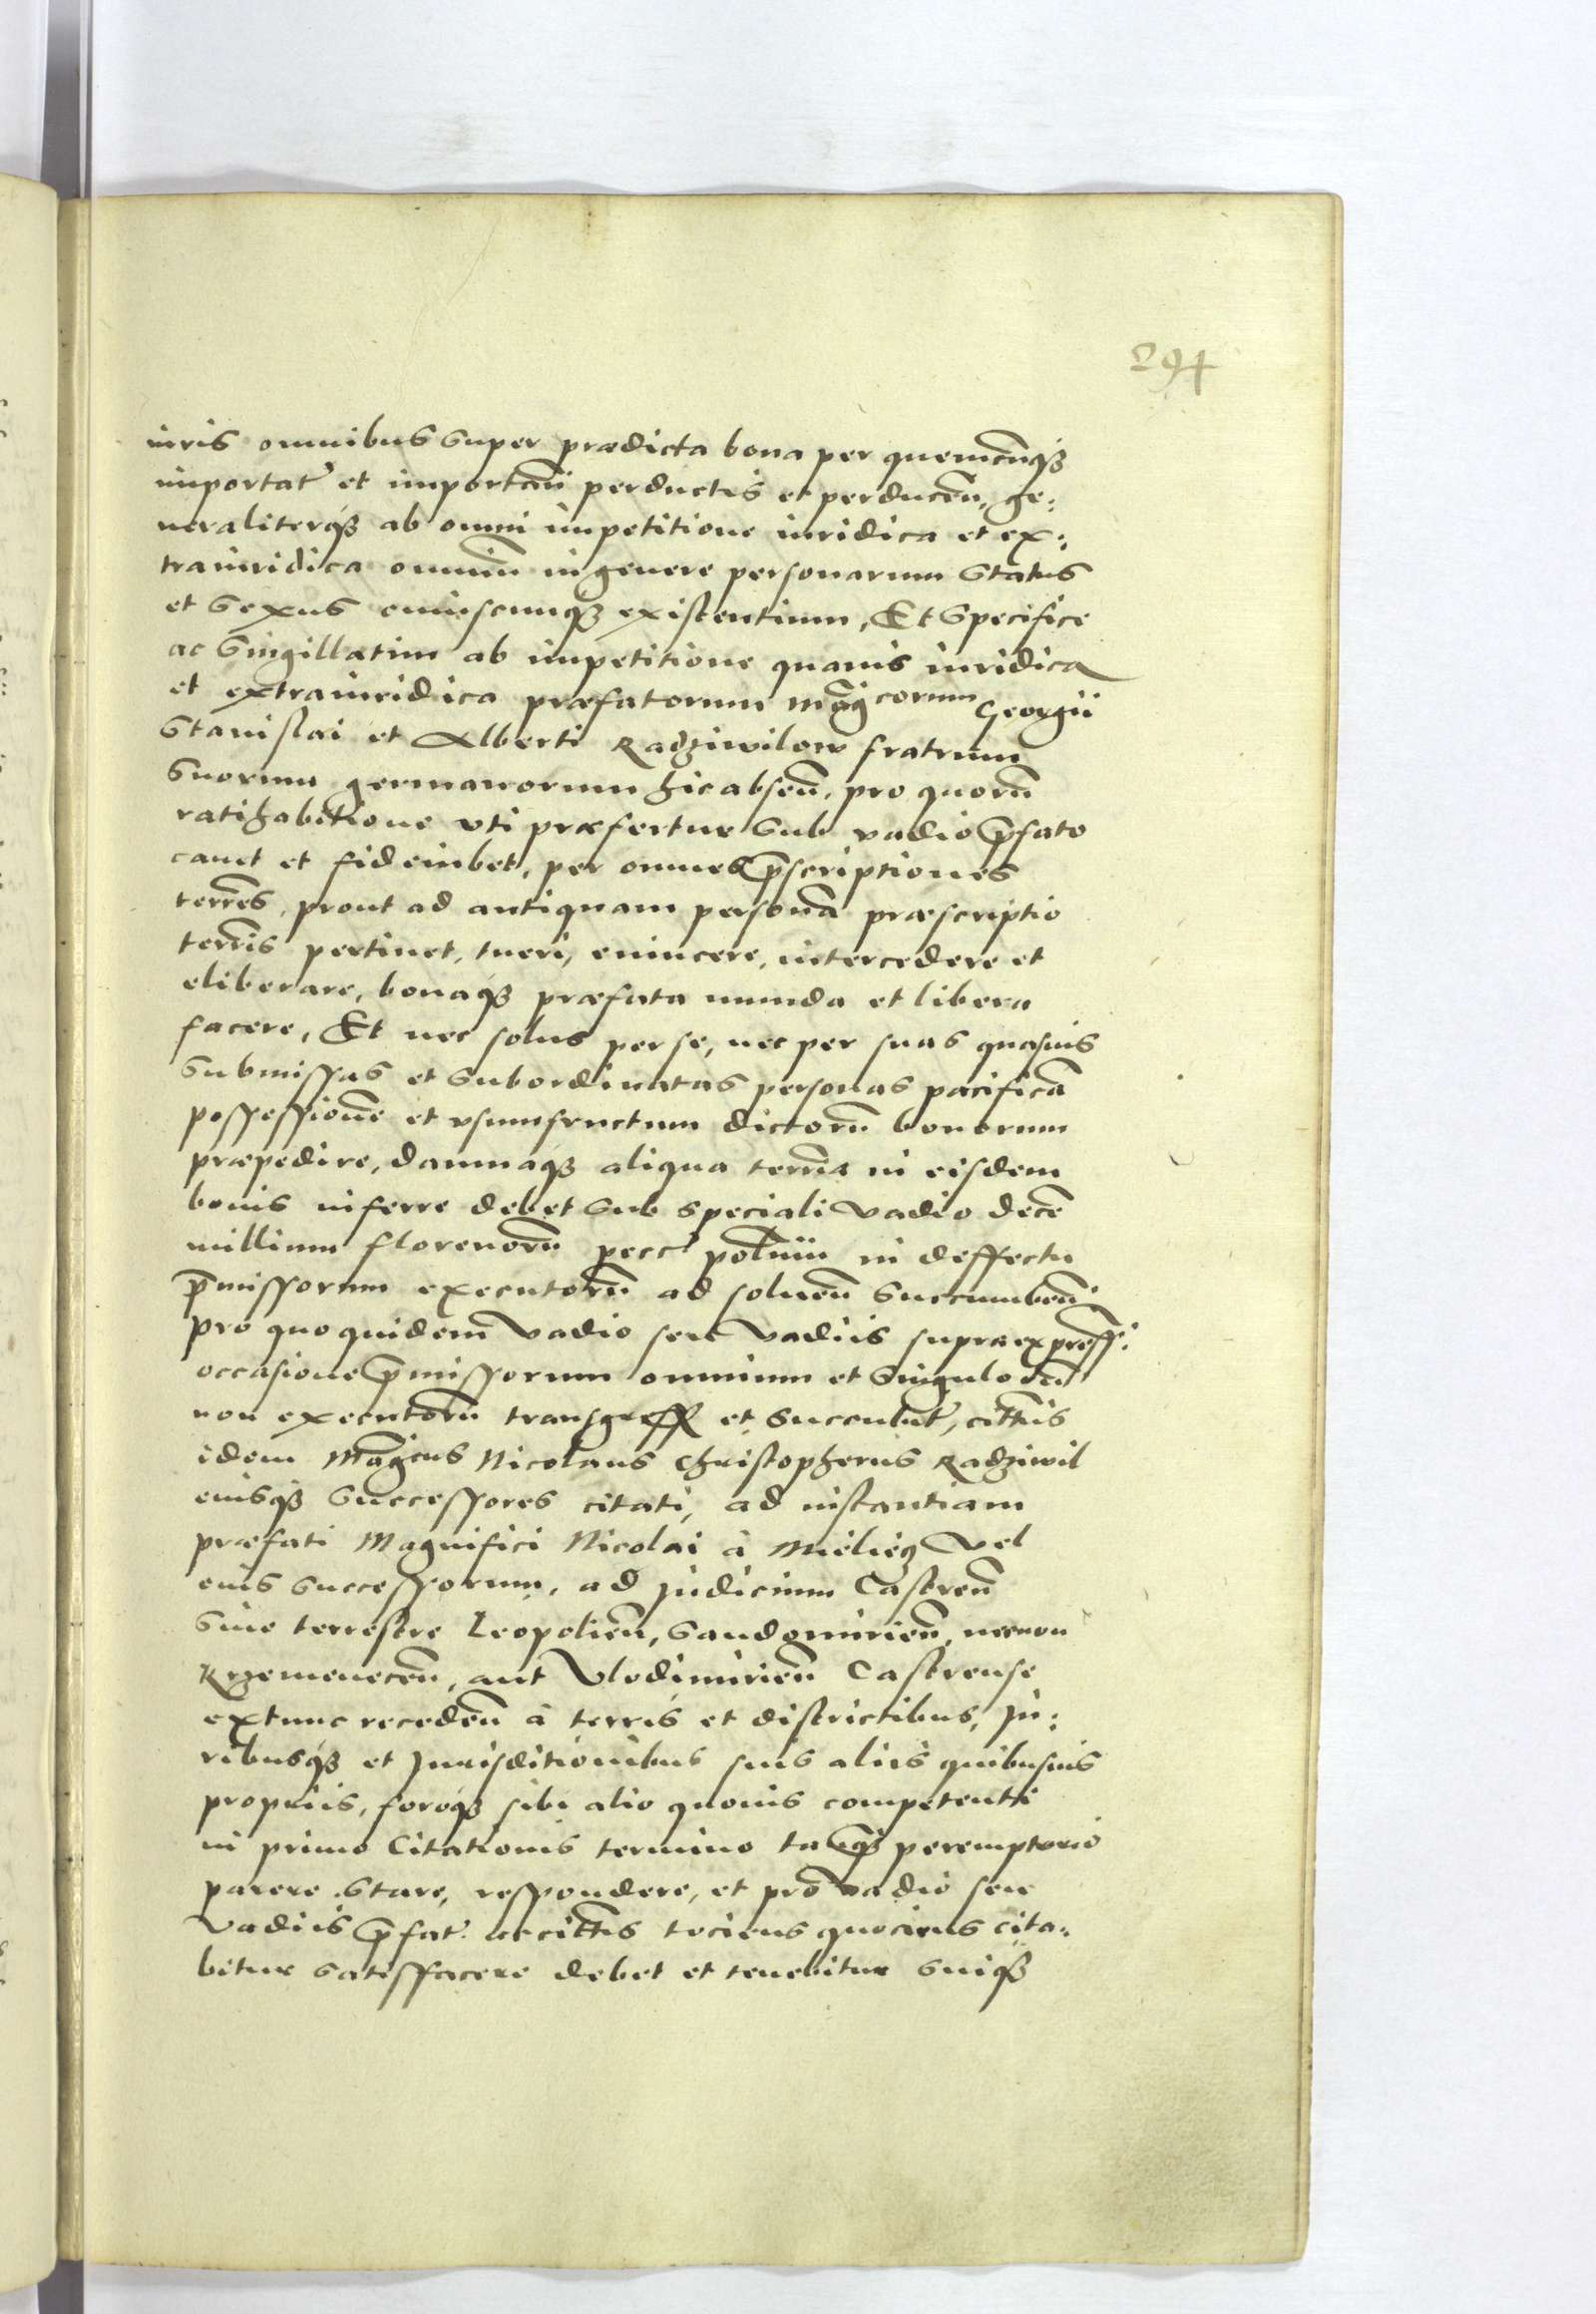 294
iuris omnibus super prædicta bona per quemcunq3
importat' et importan̄ perductis et perducen̄, ge:
neraliterq3 ab omni impetitione iuridica et ex:
traiuridica omniū in genere personarum status
et sexus cuiuscunq3 existentium, Et specifice
ac singillatim ab impetitione quauis iuridica
et extraiuridica præfatorum Mag̃corum Georgii
Stanislai et Alberti Radziwilow fratrum
suorum germanorum hic absen̄, pro quorū
ratihabitione vti præfertur sub vadio p̄fato
cauet et fideiubet, per omnes p̄scriptiones
terr̄es, prout ad antiquam personā præscriptio
terr̄is pertinet, tueri, euincere, intercedere et
eliberare, bonaq3 præfata munda et libera
facere, Et nec solus per se, nec per suas quasuis
submissas et subordinatas personas pacificā
possessionē et vsumfructum dictorū bonorum
præpedire, damnaq3 aliqua terr̄ia in eisdem
bonis inferre debet sub speciali vadio decē
millium florenorū pecc' polniī in deffectu
p̄missorum executorū ad soluen̄ succumben̄
pro quo quidem vadio seu vadiis supraexpress:
occasione p̄missorum omnium et singulorū
non executorū transgress et succubit', citt̄us
idem Mag̃cus Nicolaus Christopherus Radziwil
eiusq3 successores citati, ad instantiam
præfati Magnifici Nicolai à Mielięcz vel
eius successorum, ad Judicium Castren̄
siue terrestre Leopolien̄, Sandomirien̄, necnon
Krzemenecen̄, aut Vlodimirien̄ Castrense
extunc receden̄ à terris et districtibus, Ju:
ribusq3 et Jurisditionibus suis aliis quibusuis
propriis, foroq3 sibi alio quouis competenti
in primo Citationis termino tanq̃3 peremptorio
parere stare, respondere, et pro vadio seu
vadiis p̄fat' ac citt̄is tociens quociens cita:
bitur satisfacere debet et tenebitur suiq3